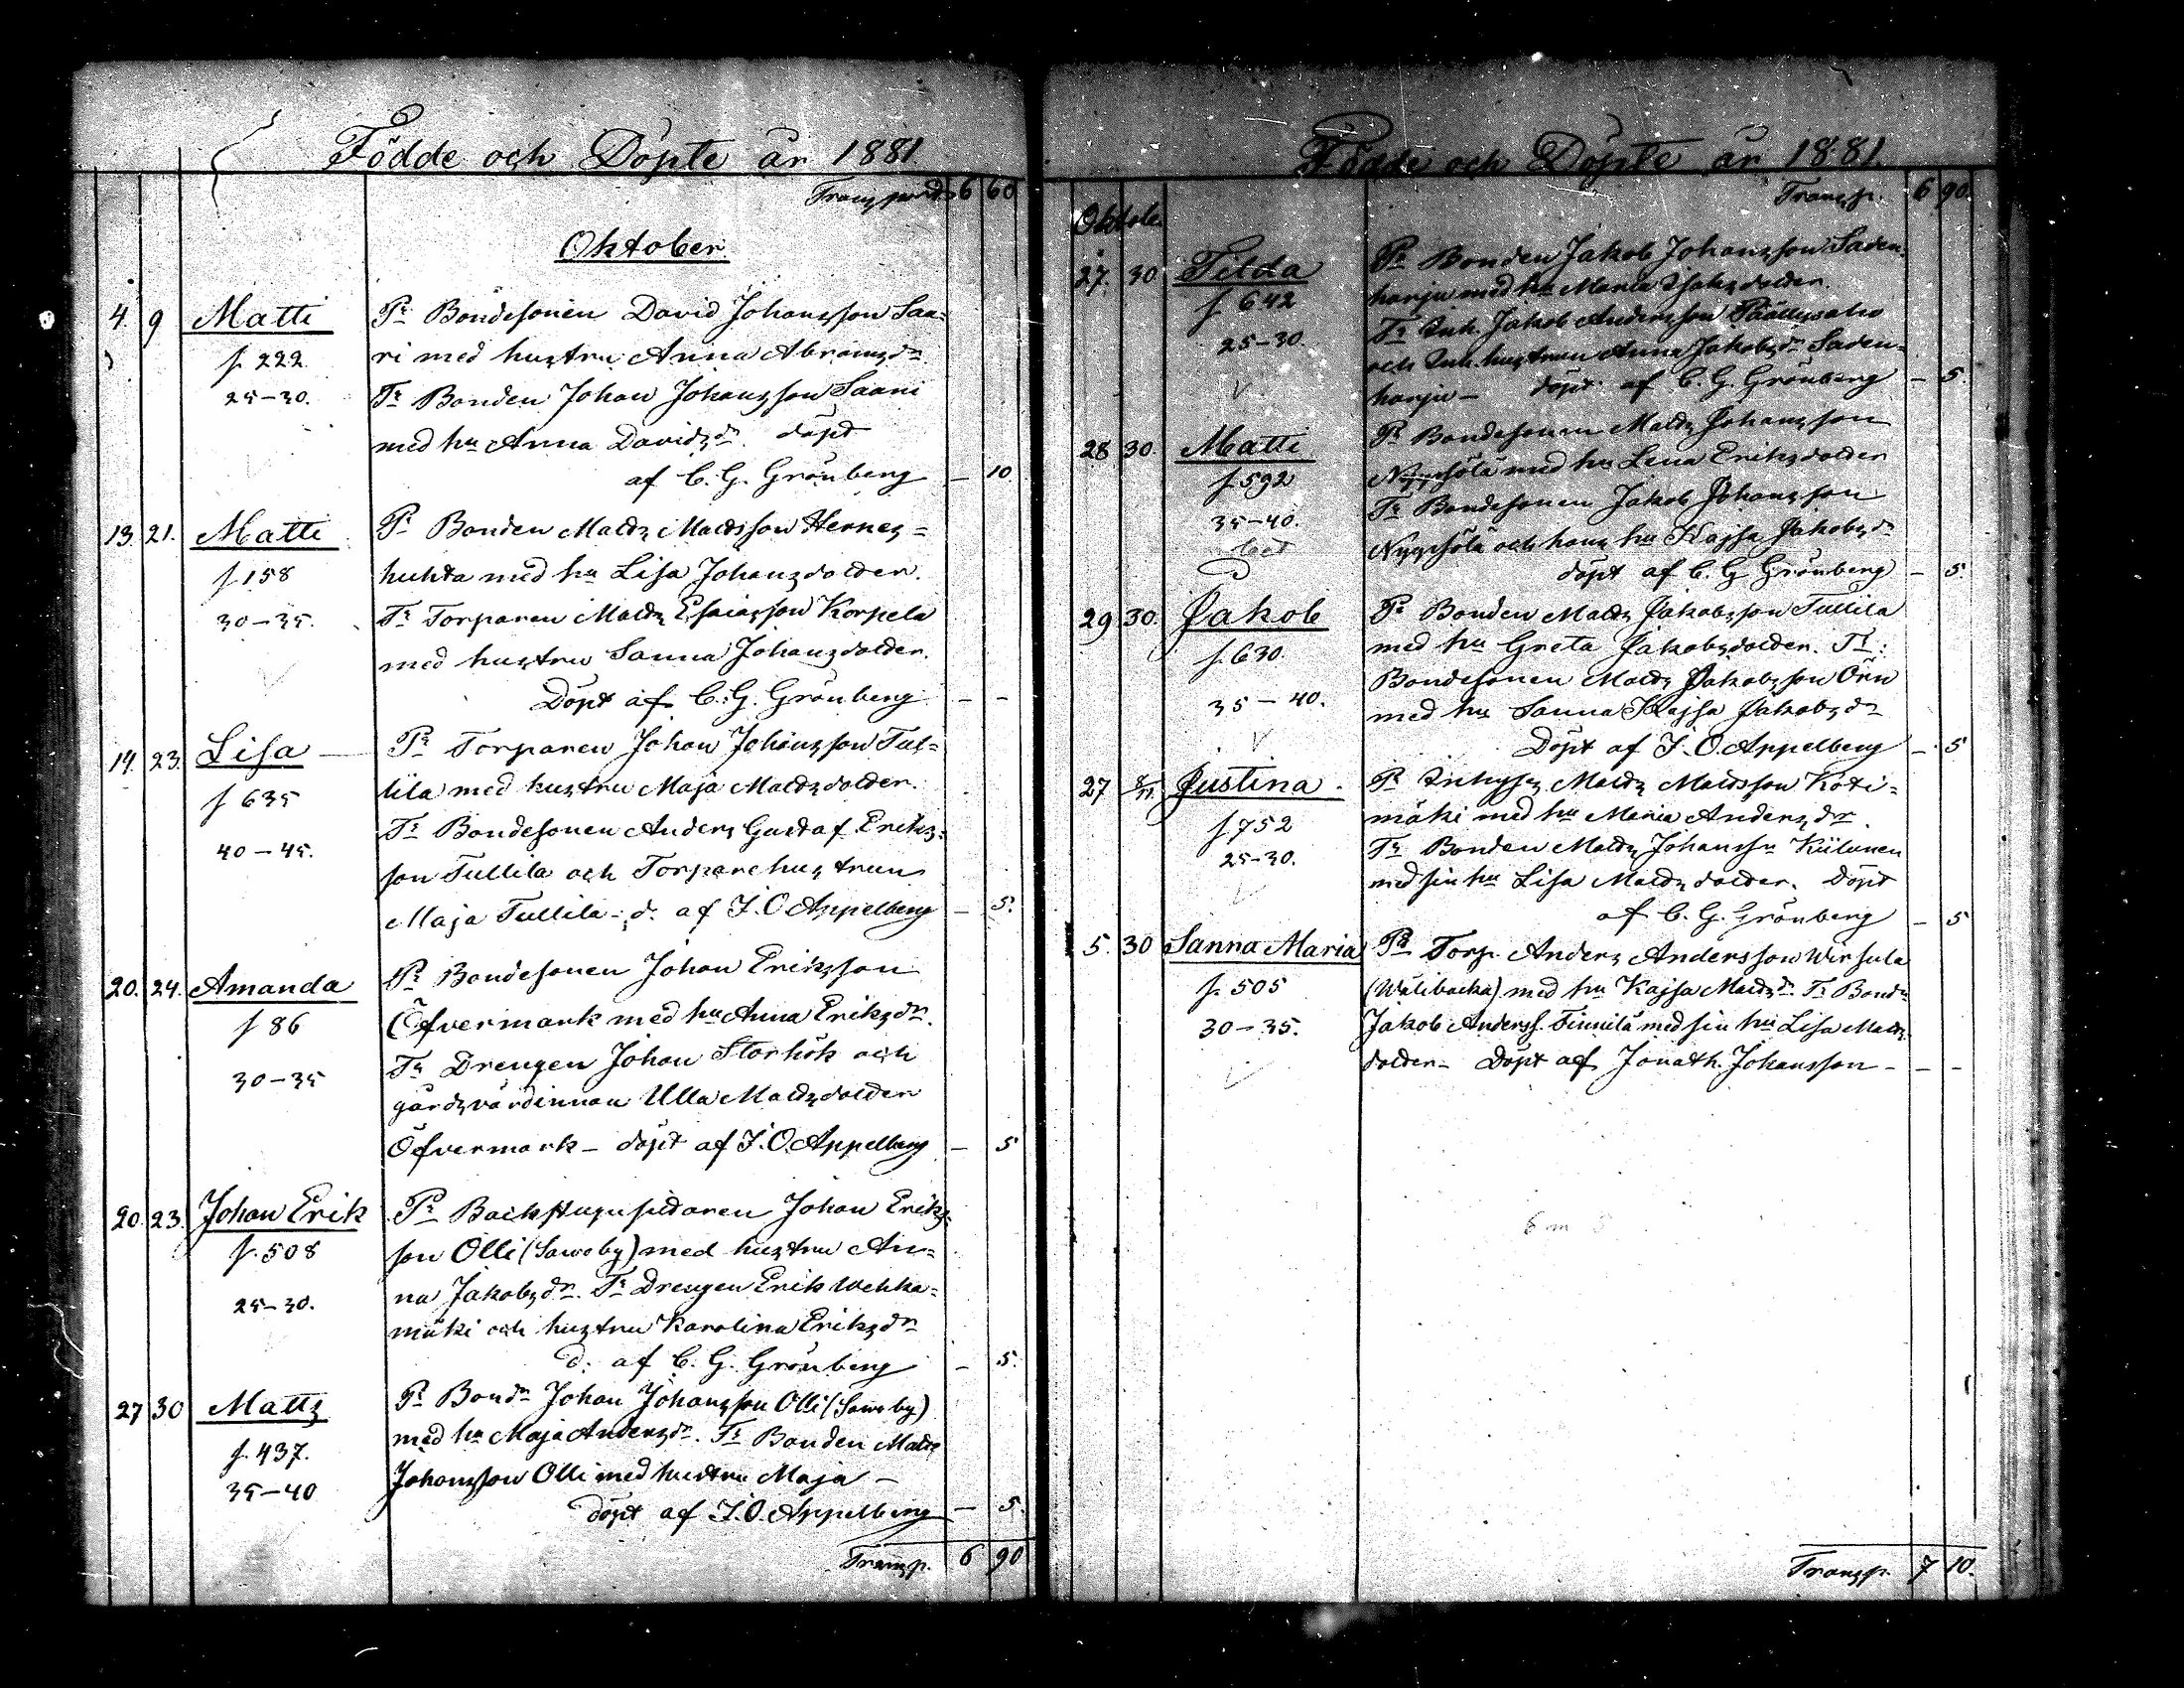 Födde och Döpte år 1881
Transport 6 60
Oktober
4. 9 Matti Pr Bondesonen David Johansson Saa-
f. 222. ri med hustru Anna Abramsdr
25-30. Tr Bonden Johan Johansson Saari
med hu Anna Davidsdr. döpt
af C. G. Grönberg – 10.
13. 21. Matti Pr Bonden Matts Mattsson Hernes-
f. 158 huhta med hu Lisa Johansdotter.
30-35. Tr Torparen Matts Esaiasson Korpela
med hustru Sanna Johansdotter.
Döpt af C. G. Grönberg – –
14. 23. Lisa Pr Torparen Johan Johansson Tul-
f 635 lila med hustru Maja Mattsdotter.
40-45. Tr Bondesonen Anders Gustaf Eriks-
son Tullila och Torparehustrun
Maja Tullila – d. af J. O. Appelberg – 5.
20. 24. Amanda Pr Bondesonen Johan Eriksson
f 86 Öfvermark med hu Anna Eriksdr.
30-35 Tr Drengen Johan Storhök och
gårdsvärdinnan Ulla Mattsdotter
Öfvermark – döpt af J. O. Appelberg – 5
20. 23. Johan Erik Pr Backstugusittaren Johan Eriks-
f. 508 son Olli (Sawoby) med hustru An-
25-30. na Jakobsdr. Tr Drengen Erik Wehka-
mäki och hustru Karolina Eriksdr
d. af C. G. Grönberg – 5.
27 30 Matts Pr Bondn Johan Johansson Olli (Sawoby)
f. 437. med hu Maja Andersdr. Tr Bonden Matts
35-40 Johansson Olli med hustru Maja –
döpt af J. O. Appelberg – 5.
Transp. 6 90
Födde och Döpte år 1881.
Transp. 6 90.
Oktober
27. 30 Tilda Pr Bonden Jakob Johansson Saden-
f 642 harju med hu Maria Isaksdotter.
25-30. Tr Inh. Jakob Andersson Päällysaho
och Inh. hustrun Anna Jakobsdr Saden-
harju – döpt af C. G. Grönberg – 5.
28 30. Matti Pr Bondesonen Matts Johansson
f. 592 med hu Lena Eriksdotter
35-40. Tr Bondesonen Jakob Johansson
och hans hu Kajsa Jakobsdr
döpt af C. G. Grönberg – 5.
29 30. Jakob Pr Bonden Matts Jakobsson Tullila
f. 630. med hu Greta Jakobsdotter. Tr:
Bondesonen Matts Jakobsson Örn
35-40. med hu Sanna Kajsa Jakobsdr
Döpt af J. O. Appelberg – 5
27 8/11 Justina. Pr Inhyses Matts Mattsson Koti-
f 752 mäki med hu Maria Andersdr.
25-30. Tr Bonden Matts Johansson Kiilunen
med sin hu Lisa Mattsdotter. Döpt
af C. G. Grönberg – 5
5. 30 Sanna Maria Pr Torp. Anders Andersson Wirsula
f. 505 (Wälibacka) med hu Kajsa Mattsdr. Tr Bondn
30-35. Jakob Anderss. Finnilä med sin hu Lisa Matts-
dotter – Döpt af Jonath. Johansson – – –
Transp. 7 10.